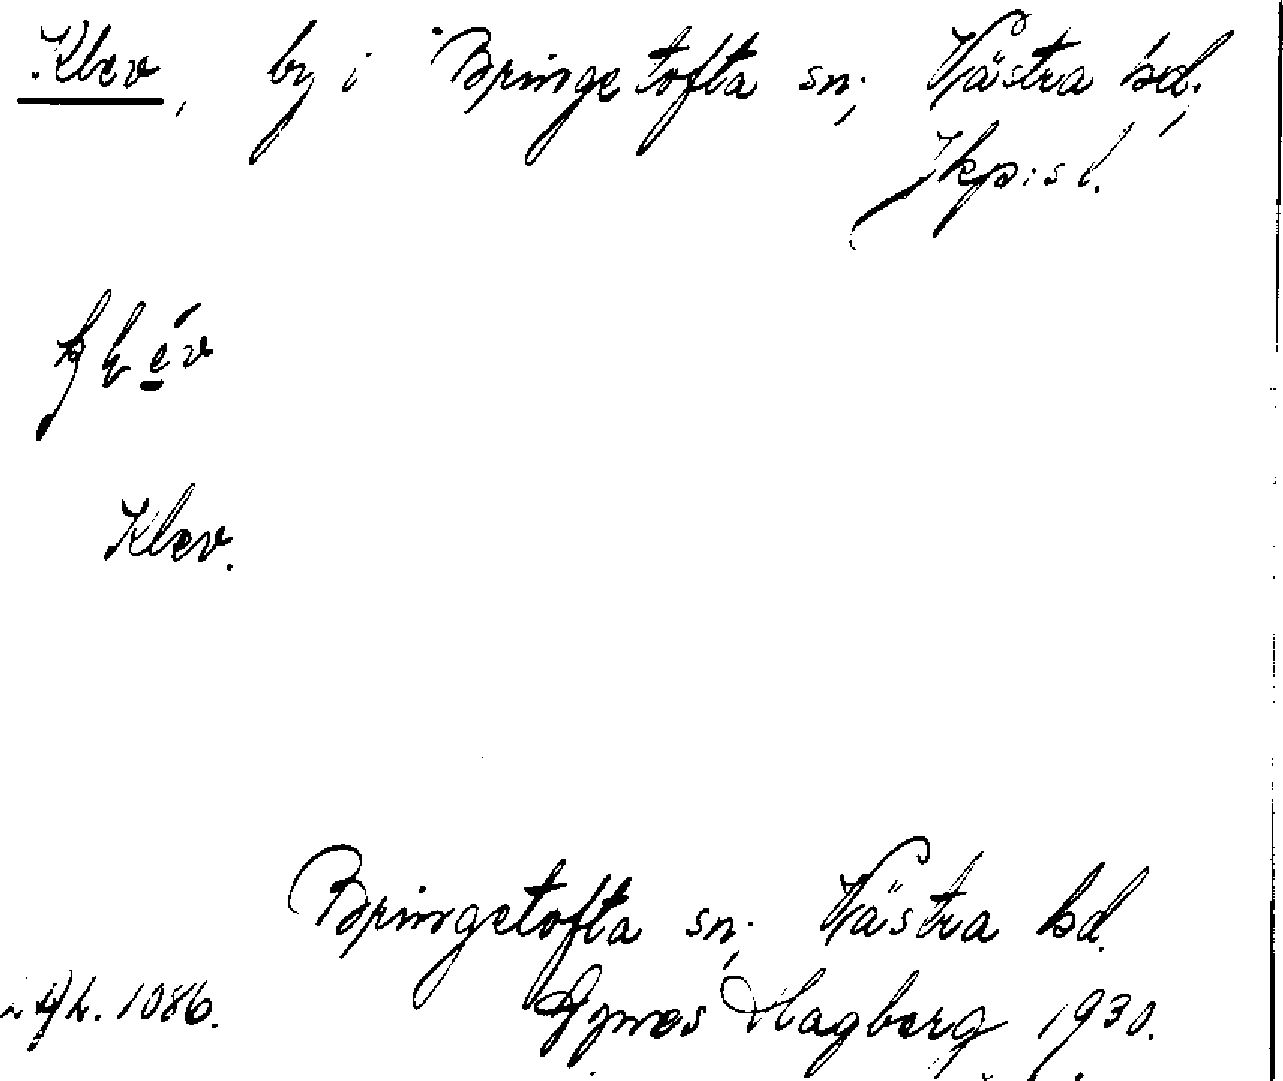 Klev, by i Bringetofta sn; Västra hd.,
Jkp:s l.
Klev.
Bringetofta sn; Västra hd.
1086. Agnes Hagberg 1930.